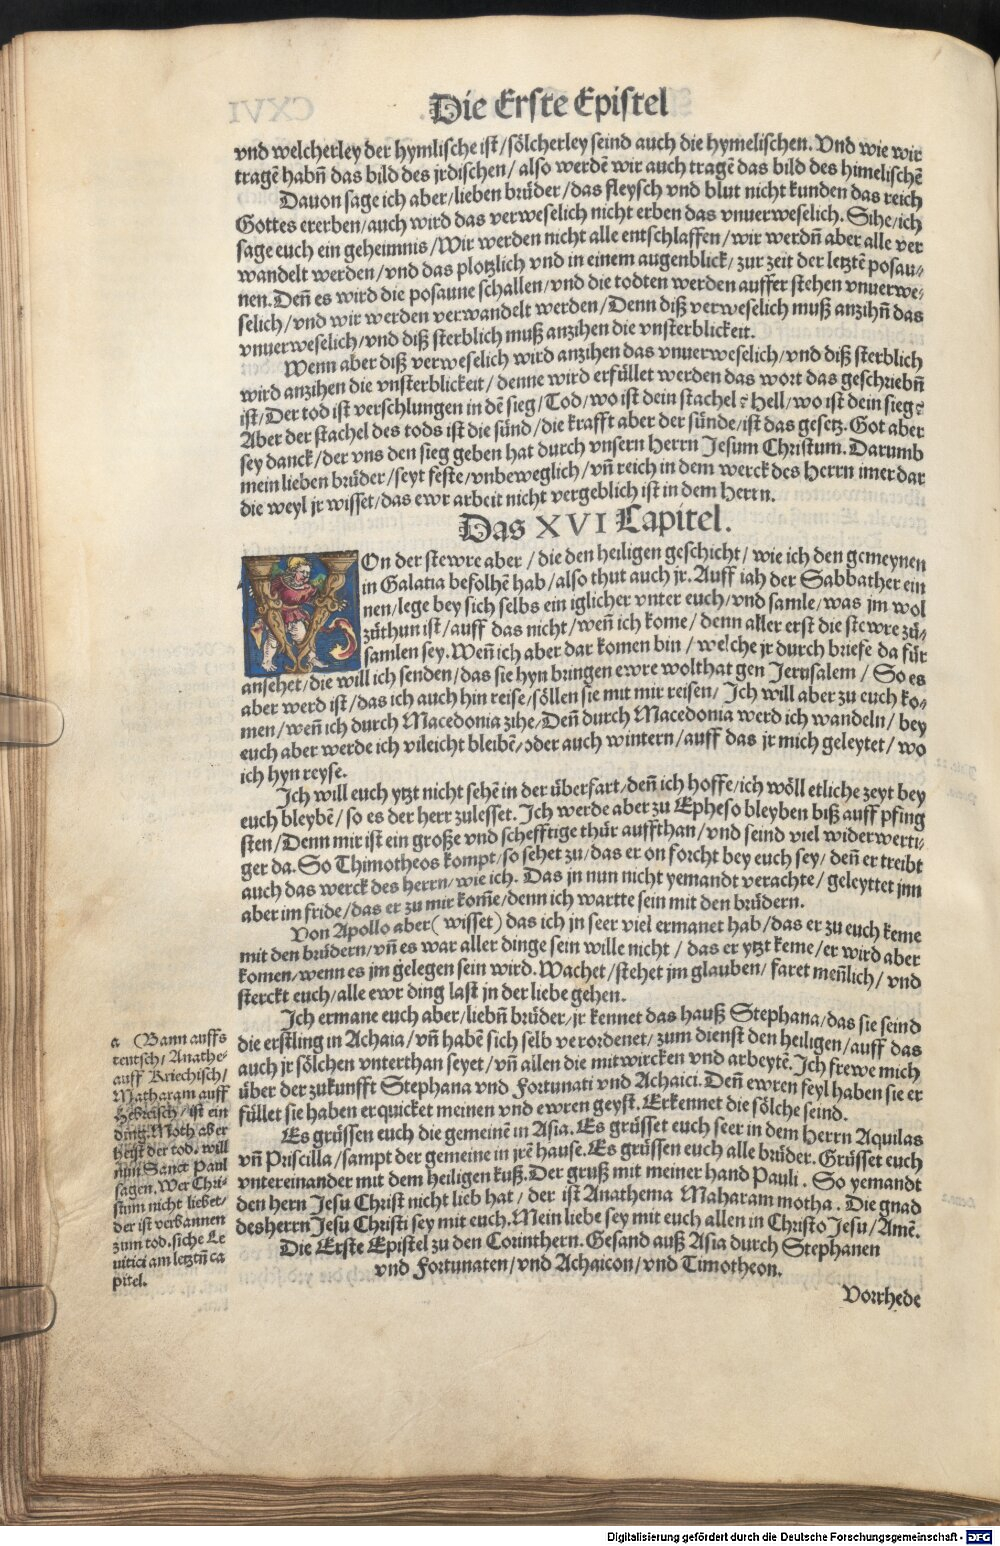 Die Erste Epistel
vnd welcherley der hymlische ist/sölcherley seind auch die hymelischen. Vnd wie wir
tragẽ habñ das bild des jrdischen/ also werdẽ wir auch tragẽ das bild des himelischẽ
Dauon sage ich aber/lieben brüder/das fleysch vnd blut nicht kunden das reich
Gottes ererben/auch wird das verweselich nicht erben das vnuerweselich. Sihe/ich
sage euch ein geheimnis/Wir werden nicht alle entschlaffen/wir werdñ aber alle ver
wandelt werden/vnd das plotzlich vnd in einem augenblick/zur zeit der letztẽ posau⸗
nen. Deñ es wird die posaune schallen/vnd die todten werden auffer stehen vnuerwe⸗
selich/vnd wir werden verwandelt werden/Denn diß verweselich muß anzihñ das
vnuerweselich/vnd diß sterblich muß anzihen die vnsterblickeit.
Wenn aber diß verweselich wird anzihen das vnuerweselich/vnd diß sterblich
wird anzihen die vnsterblickeit/ denne wird erfüllet werden das wort das geschriebñ
ist/Der tod ist verschlungen in dẽ sieg/Tod/wo ist dein stachel? Hell/wo ist dein sieg?
Aber der stachel des tods ist die sünd/die krafft aber der sünde/ist das gesetz. Got aber
sey danck/der vns den sieg geben hat durch vnsern Herrn Jesum Christum. Darumb
mein lieben brüder/seyt feste/vnbeweglich/vñ reich in dem werck des Herrn imerdar
die weyl jr wisset/das ewr arbeit nicht vergeblich ist in dem Herrn.
Das XVI Capitel.
VOn der stewre aber/die den heiligen geschicht/wie ich den gemeynen
in Galatia befolhẽ hab/also thut auch jr. Auff iah der Sabbather ein
nen/lege bey sich selbs ein iglicher vnter euch/vnd samle/was jm wol
zůthun ist/auff das nicht/weñ ich kome/denn aller erst die stewre zů⸗
samlen sey. Weñ ich aber dar komen bin/welche jr durch briefe da für
ansehet/die will ich senden/das sie hyn bringen ewre wolthat gen Jerusalem/So es
aber werd ist/das ich auch hin reise/söllen sie mit mir reisen/Jch will aber zu euch ko⸗
men/weñ ich durch Macedonia zihe/Deñ durch Macedonia werd ich wandeln/bey
euch aber werde ich vileicht bleibẽ/oder auch wintern/auff das jr mich geleytet/wo
ich hyn reyse.
Jch will euch ytzt nicht sehẽ in der überfart/deñ ich hoffe/ich wöll etliche zeyt bey
euch bleybẽ/so es der herr zulesset. Jch werde aber zu Epheso bleyben biß auff pfing
sten/Denn mir ist ein große vnd schefftige thür auffthan/vnd seind viel widerwerti⸗
ger da. So Thimotheos kompt/so sehet zu/das er on forcht bey euch sey/deñ er treibt
auch das werck des herrn/wie ich. Das jn nun nicht yemandt verachte/geleyttet jnn
aber im fride/das er zu mir kom̃e/denn ich wartte sein mit den brüdern.
Von Apollo aber(wisset)das ich in seer viel ermanet hab/das er zu euch keme
mit den brüdern/vñ es war aller dinge sein wille nicht/das er ytzt keme/er wird aber
komen/wenn es jm gelegen sein wird. Wachet/stehet jm glauben/faret meñlich/vnd
sterckt euch/alle ewr ding last jn der liebe gehen.
Jch ermane euch aber/liebñ brüder/jr kennet das hauß Stephana/das sie seind
die erstling in Achaia/vñ habẽ sich selb verordenet/zum dienst den heiligen/auff das
auch jr sölchen vnterthan seyet/vñ allen die mitwircken vnd arbeytẽ. Jch frewe mich
über der zukunfft Stephana vnd Fortunati vnd Achaici. Deñ ewren feyl haben sie er
füllet sie haben erquicket meinen vnd ewren geyst. Erkennet die sölche seind.
Es grüssen euch die gemeinẽ in Asia. Es grüsset euch seer in dem Herrn Aquilas
vñ Priscilla/sampt der gemeine in jrẽ hause. Es grüssen euch alle brüder. Grüsset euch
vntereinander mit dem heiligen kuß. Der gruß mit meiner hand Pauli. So yemandt
den hern Jesu Christ nicht lieb hat/der ist Anathema Maharam motha. Die gnad
desherrn Jesu Christi sey mit euch. Mein liebe sey mit euch allen in Christo Jesu/Amẽ.
Die Erste Epistel zu den Corinthern. Gesand auß Asia durch Stephanen
vnd Fortunaten/vnd Achaicon/vnd Timotheon.
Vorrhede
a (Bann auffs
teutsch/Anathe⸗
auff Kriechisch/
Matharam auff
Hebreisch/ist ein
ding. Moth aber
heist der tod. will
nun Sanct Paul
sagen. Wer Chri⸗
stum nicht liebet/
der ist verbannen
zum tod. siche Le
uitici am letztñ ca
pitel.
Digitalisierung gefördert durch die Deutsche Forschungsgemeinschaft - DFG